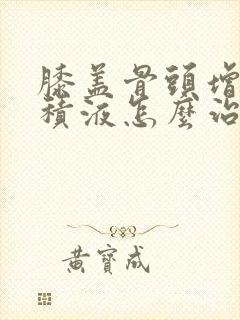 膝盖骨頭增
積液怎麼治
黃寶成